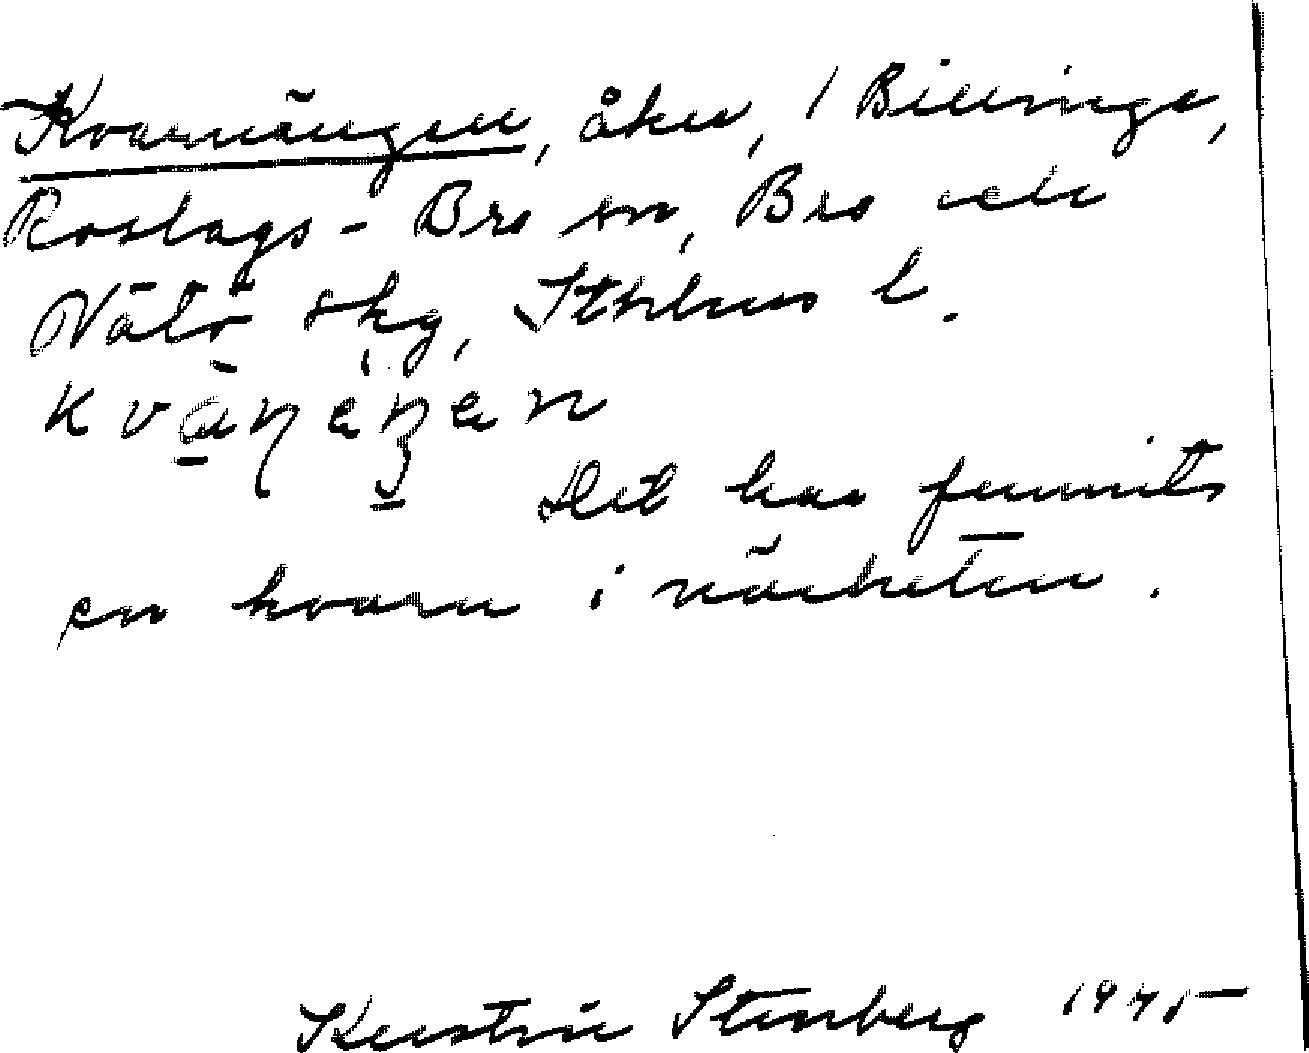 Kvarnängen, åker, 1 Billinge,
Roslags-Bro sn, Bro och
Vätö skg, Sthlms l.
Det har funnits
en kvarn i närheten.
Kerstin Stenberg 1945